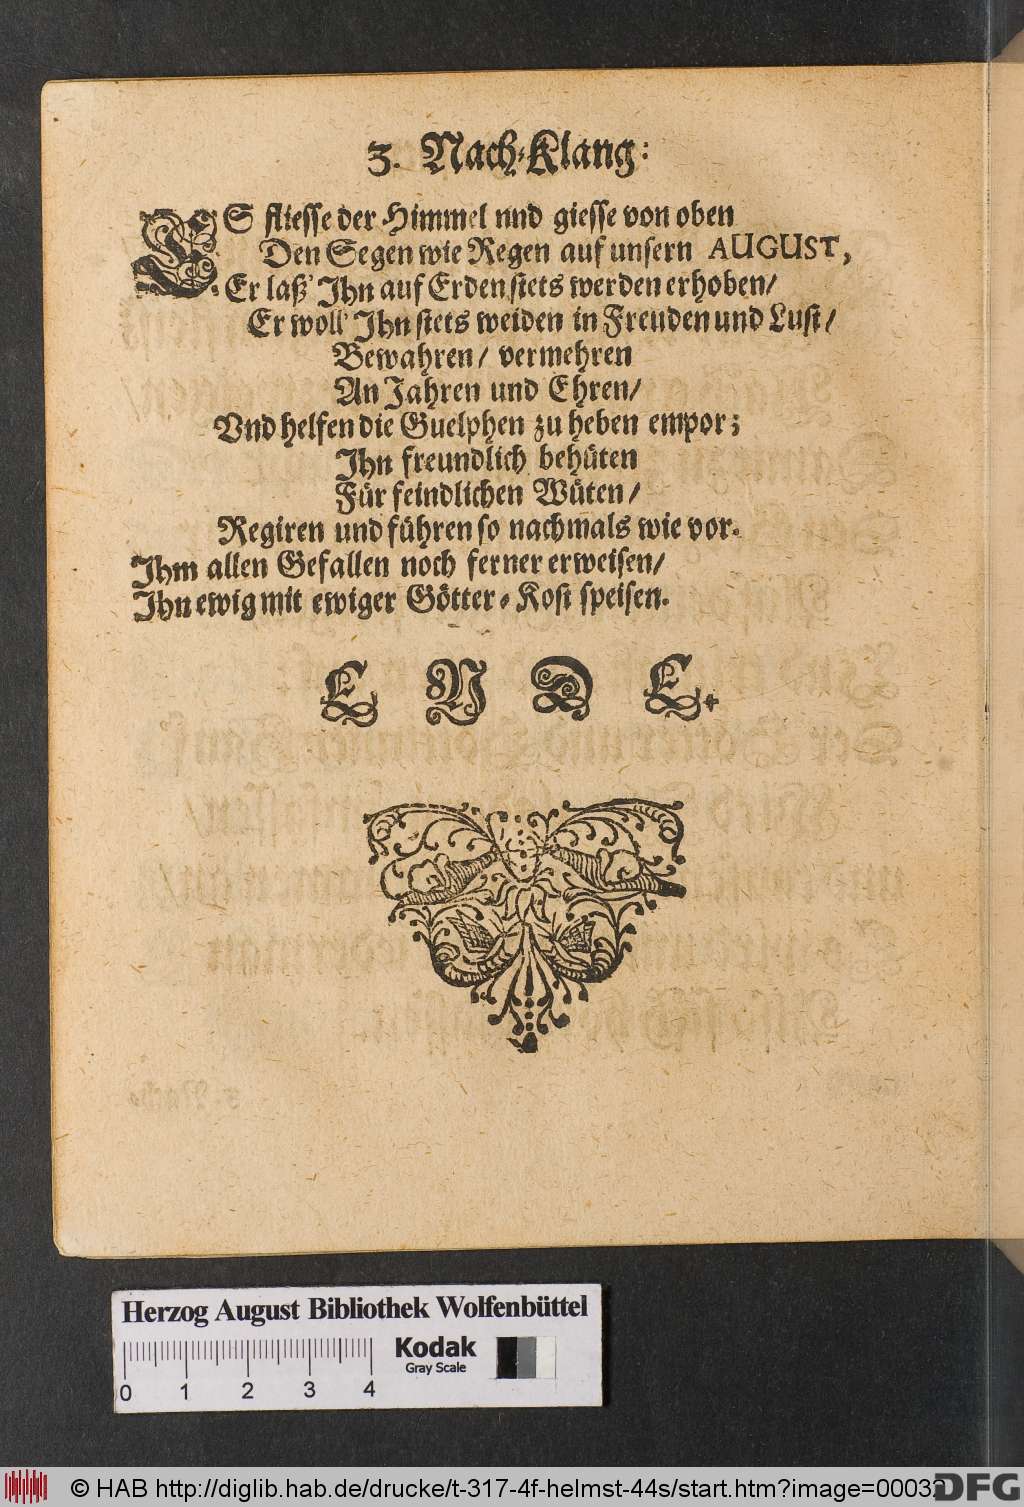 3. Nach-Klang:
ES fliesse der Himmel nnd giesse von oben
Den Segen wie Regen auf unsern AUGUST,
Er laß' Ihn auf Erden stets werden erhoben/
Er woll' Ihn stets weiden in Freuden und Lust/
Bewahren/ vermehren
An Jahren und Ehren/
Vnd helfen die Guelphen zu heben empor;
Ihn freundlich behüten
Für feindlichen Wüten/
Regiren und führen so nachmals wie vor.
Ihm allen Gefallen noch ferner erweisen/
Ihn ewig mit ewiger Götter-Kost speisen.
E N D E.
Herzog August Bibliothek Wolfenbüttel
Kodak
Gray Scale
0 1 2 3 4
© HAB http://diglib.hab.de/drucke/t-317-4f-helmst-44s/start.htm?image=00032
DFG